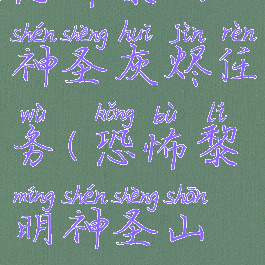 shén shèng huī jìn rèn
神圣灰烬任
wù kǒng bù lí
务(恐怖黎
míng shén shèng shān
明神圣山